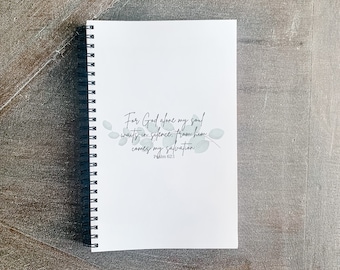 For God alone my soul
waits in silence; from him
comes my salvation
PSALM 62:1